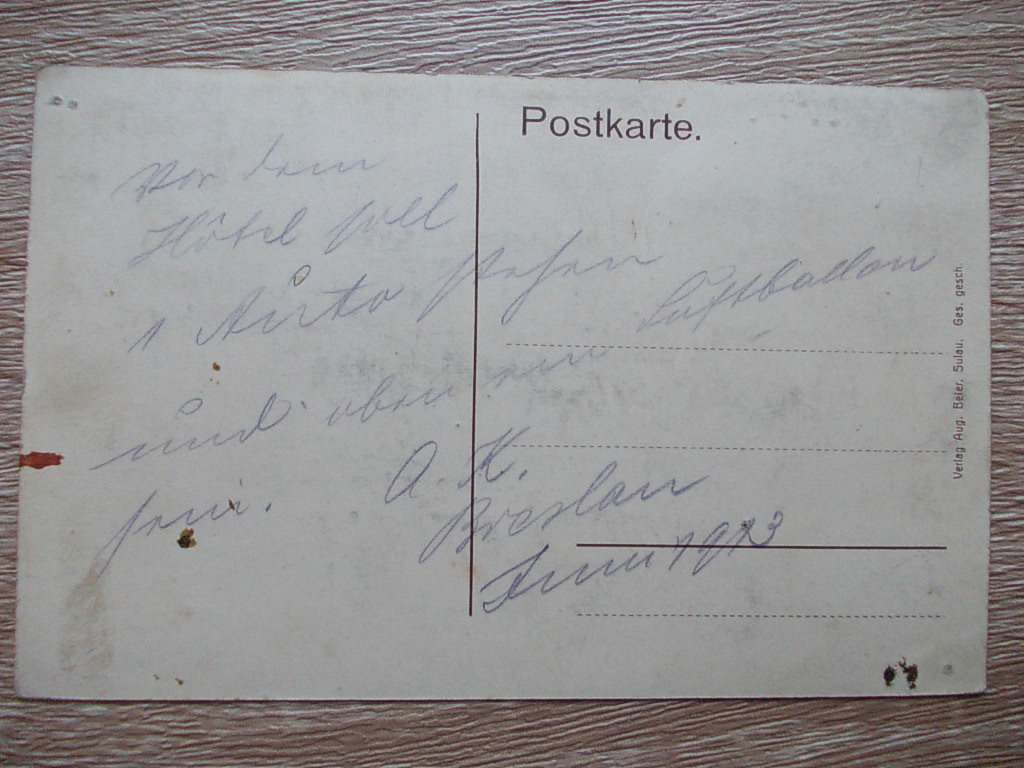 Postkarte.
Vor dem
Hôtel soll
1 Auto stehen
und oben ein Luftballon
sein. A. K.
Breslau
Juni 1913
Verlag Aug. Beier, Sulau. Ges. gesch.